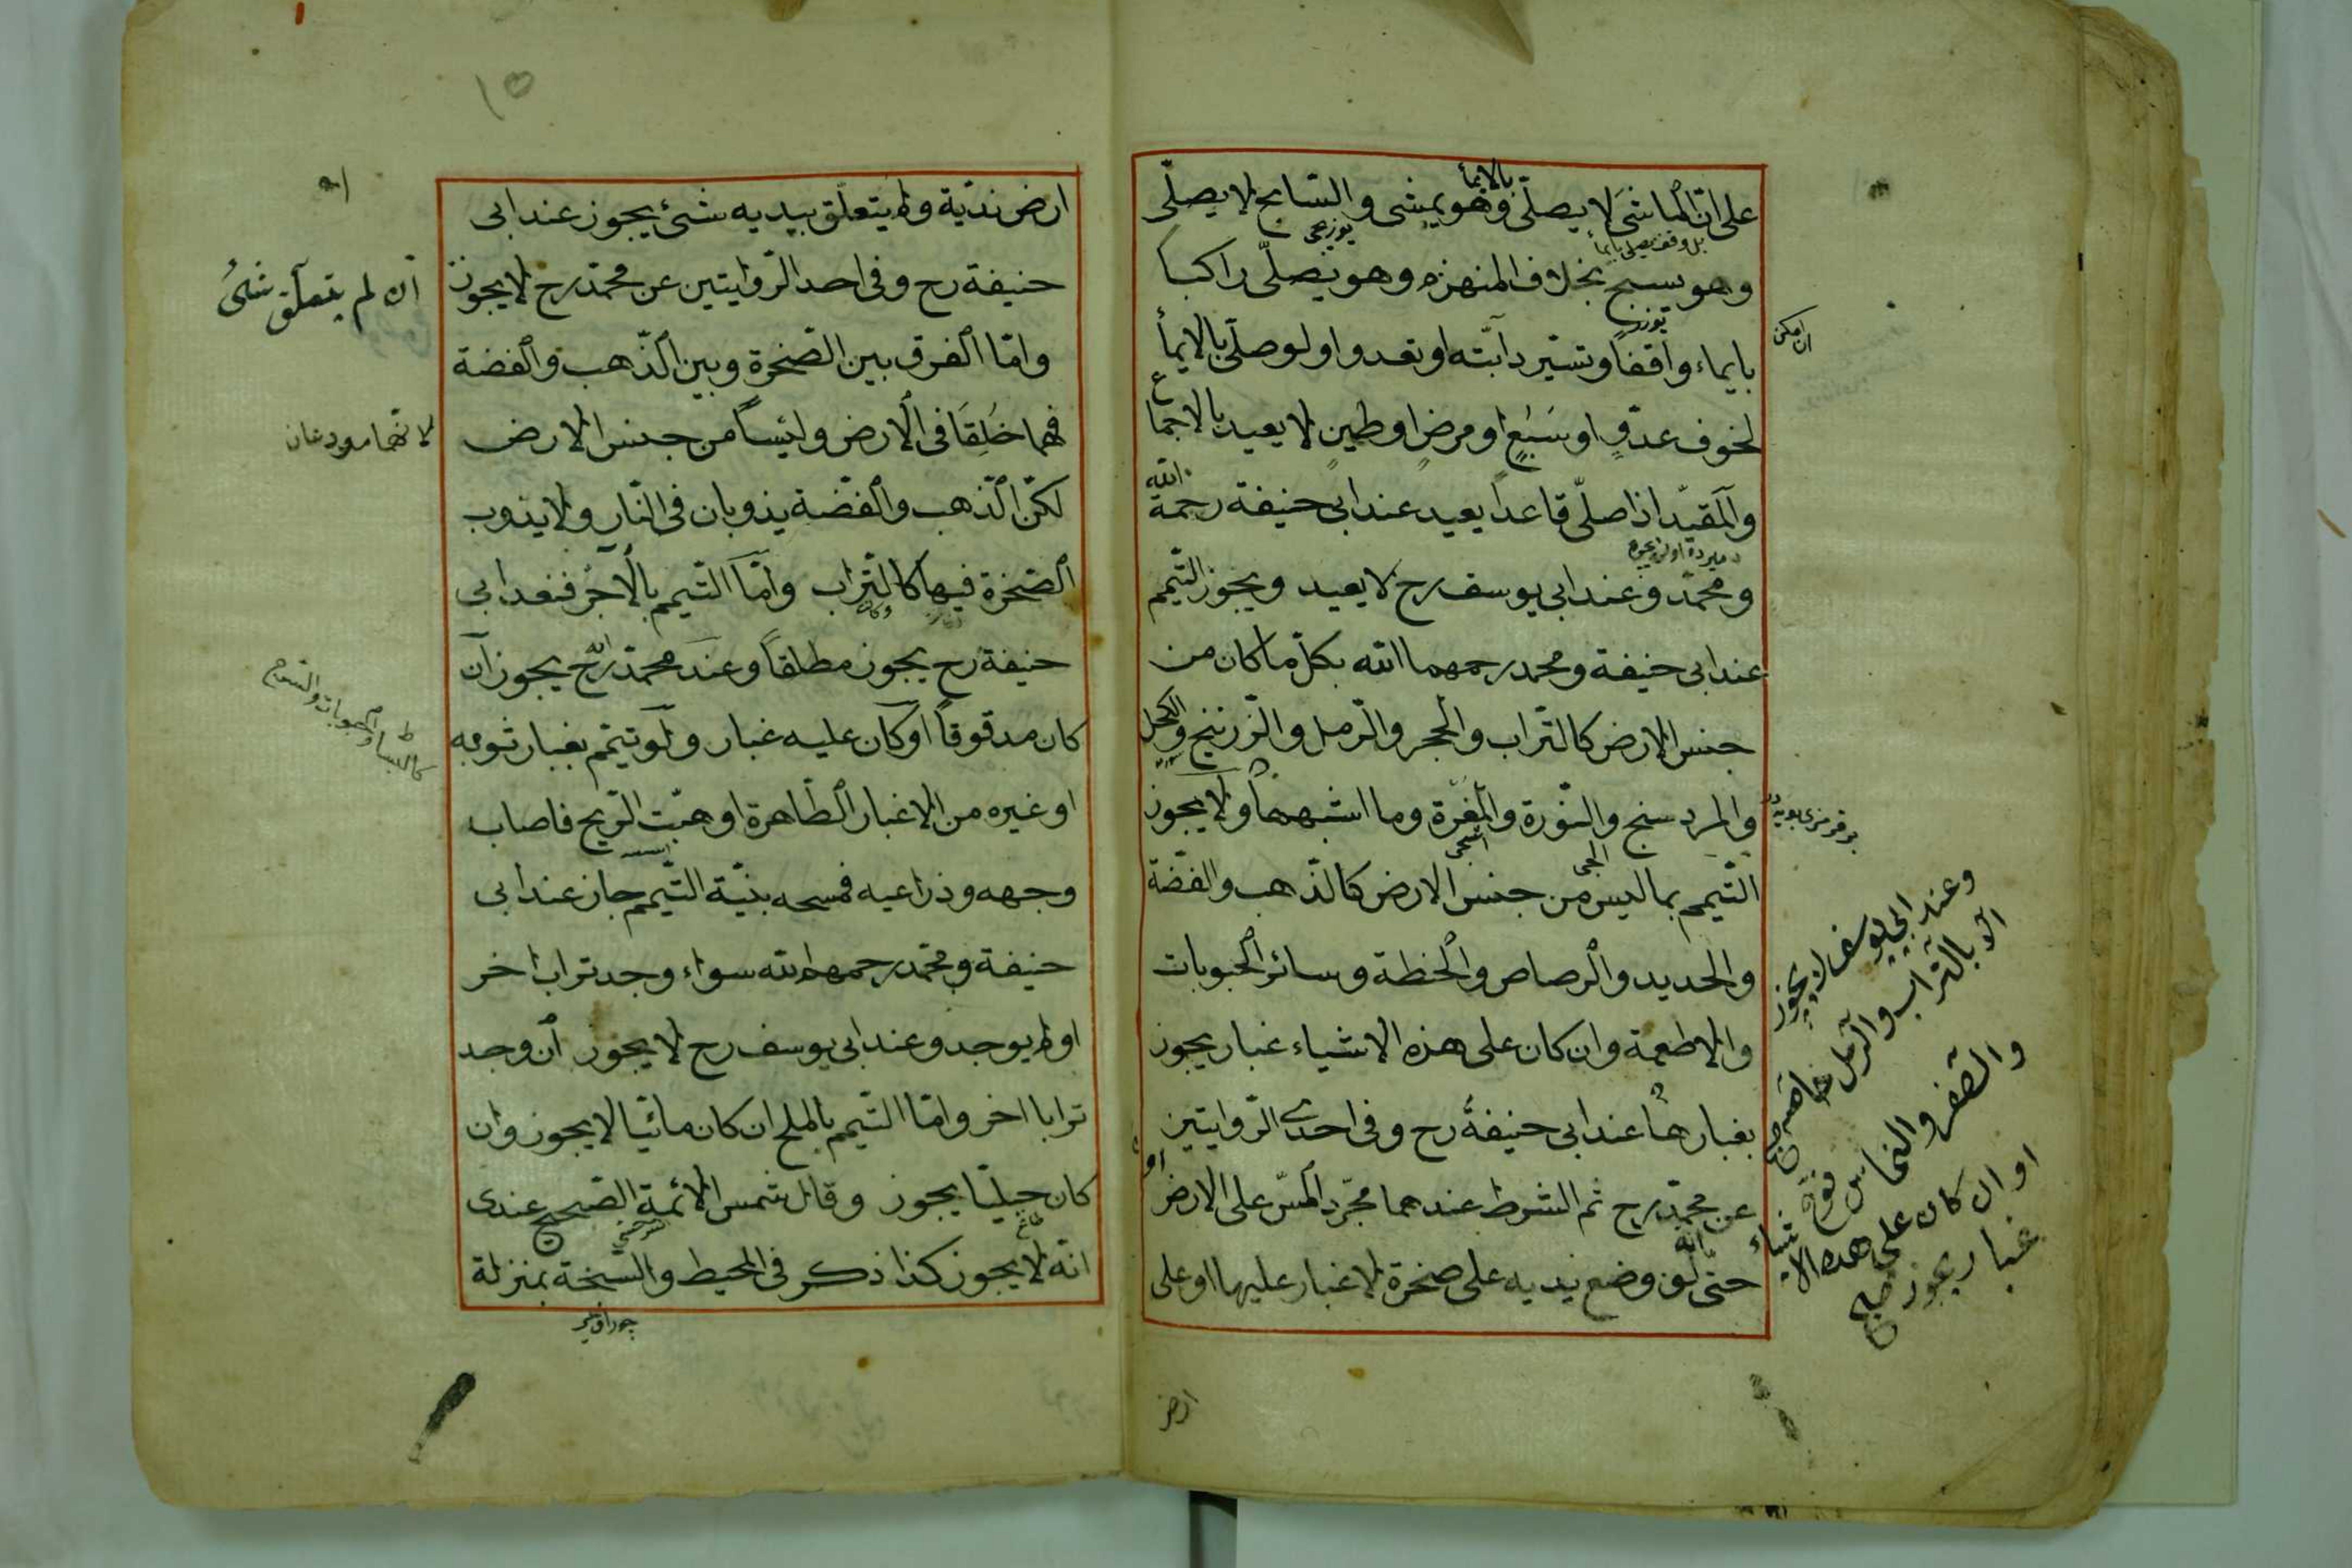 على ان الماشى لا يصلّى وهو يمشى والسّابح لا يصلّى
بالايمأ
وهو يسبح بخلاف المنهزم وهو يصلّى راكبا
بايماء واقفا وتسير دابّته او تعدو اولو صلّى بالايمأ
ان امكن
لخوف عدوٍّ او سَبُعٍ او مرضٍ او طينٍ لا يعيد بالاجماع
والمقيّد اذا صلّى قاعداً يعيد عند ابى حنيفة رحمة الله
ومحمّد وعند ابى يوسف رح لا يعيد ويجوز التّيمّم
عند ابى حنيفة ومحمد رحمهما الله بكلّ ما كان من
جنس الارض كالتّراب والحجر والرّمل والزّرنيخ والكحل
والمردسنج والنّورة والمَغَرة وما اشبهها ولا يجوز
التّيمم بما ليس من جنس الارض كالذّهب والفضّة
والحديد والرصاص والحنطة وسائر الحبوبات
والاطعمة وان كان على هذه الاشياء غبار يجوز
بغبارها عند ابى حنيفة رح وفى احدى الرّوايتين
عن محمّد رح ثم الشرط عندهما مجّرد المسّ على الارض
حتّى لو وضع يديه على صخرة لا غبار عليها او على
وعند ابي يوسف لا يجوز
الا بالتراب والرمل خاصه صح
والصفر والنحاس
او ان كان على هذه الاشياء
غبار يجوز صح
ارض
١٥
ارض نديّة ولم يتعلّق بيديه شئ يجوز عند ابى
حنيفة رح وفى احد الرّوايتين عن محمّد رح لا يجوز
ان لم يتعلّق شئ
وامّا الفرق بين الصّخرة وبين الذّهب والفضة
فهما خُلِقَا فى الارض وليسا من جنس الارض
لانهما مودعان
لكنّ الذّهب والفضّة يذوبان فى النّار ولا يذوب
الصّخرة فيها كالتّراب وامّا التّيمم بالآجُر فعند ابى
حنيفة رح يجوز مطلقاً وعند محمّد رح يجوز ان
كان مدقوقاً او كان عليه غبار ولو تيمّم بغبار ثوبه
او غيره من الاغبار الطّاهرة او هبّت الرّيح فاصاب
وجهه وذراعيه فمسحه بنيّة التّيمم جاز عند ابى
حنيفة ومحمّد رحمهما الله سواء وجد تراب اخر
او لم يوجد وعند ابى يوسف رح لا يجوز ان وجد
ترابا اخر وامّا التّيمم بالملح ان كان مائيّا لا يجوز وان
كان جبليّا يجوز وقال شمس الائمة الصّحيح عندى
سرخسي
انّه لا يجوز كذا ذكر فى المحيط والسّبخة بمنزلة